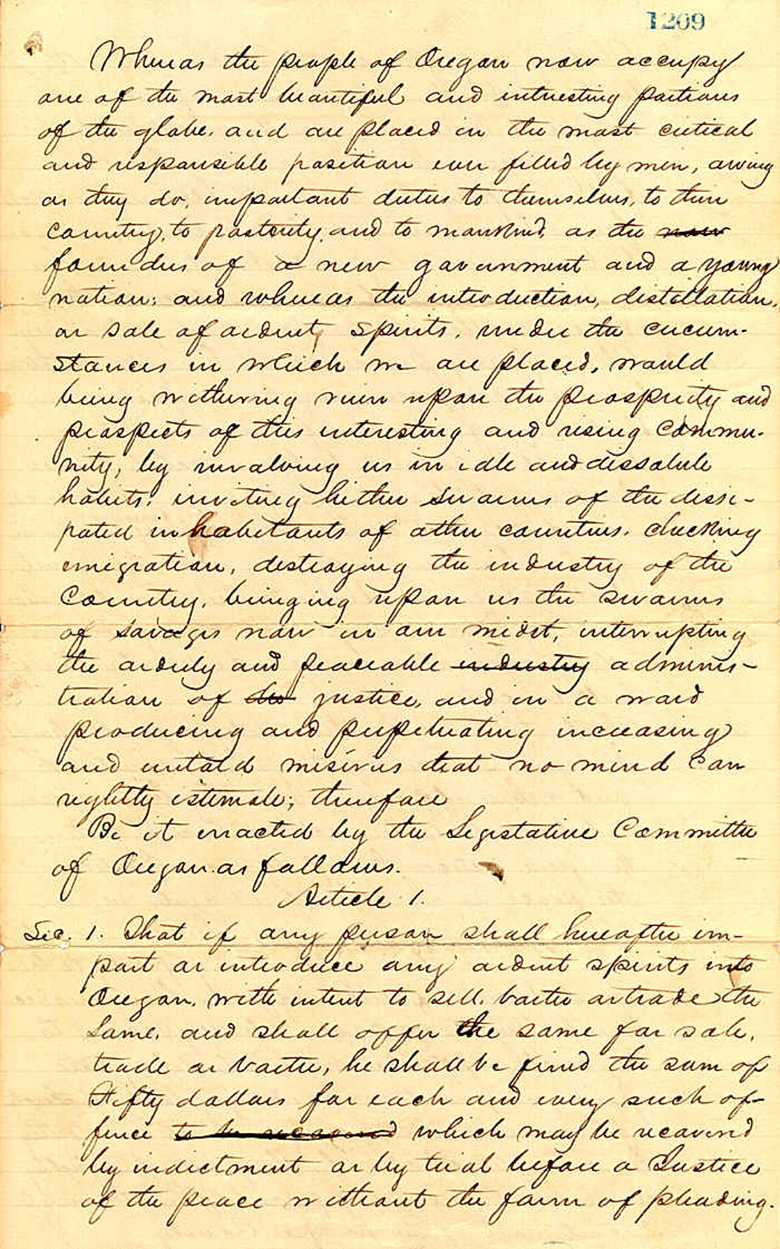 1209
Whereas the people of Oregon now occupy
one of the most beautiful and interesting portions
of the globe, and are placed in the most critical
and responsible position ever filled by men, owing
as they do, important duties to themselves, to their
country, to posterity, and to mankind, as the now
founders of a new government and a young
nation; and whereas the introduction, distillation,
or sale of ardent spirits, under the circum-
stances in which we are placed, would
bring withering ruin upon the prosperity and
prospects of this interesting and rising commu-
nity, by involving us in idle and dissolute
habits, inviting hither swarms of the dissi-
pated inhabitants of other countries, checking
emigration, destroying the industry of the
country, bringing upon us the swarms
of savages now in our midst, interrupting
the orderly and peaceable industry adminis-
tration of justice, and in a word
producing and perpetuating increasing
and untold miseries that no mind can
rightly estimate; therefore
Be it enacted by the Legislative Committee
of Oregon as follows.
Article 1.
Sec. 1. That if any person shall hereafter im-
port or introduce any ardent spirits into
Oregon, with intent to sell, barter or trade the
same, and shall offer the same for sale,
trade or barter, he shall be fined the sum of
Fifty dollars for each and every such of-
fence to be recovered which may be recovered
by indictment or by trial before a Justice
of the peace without the form of pleading.